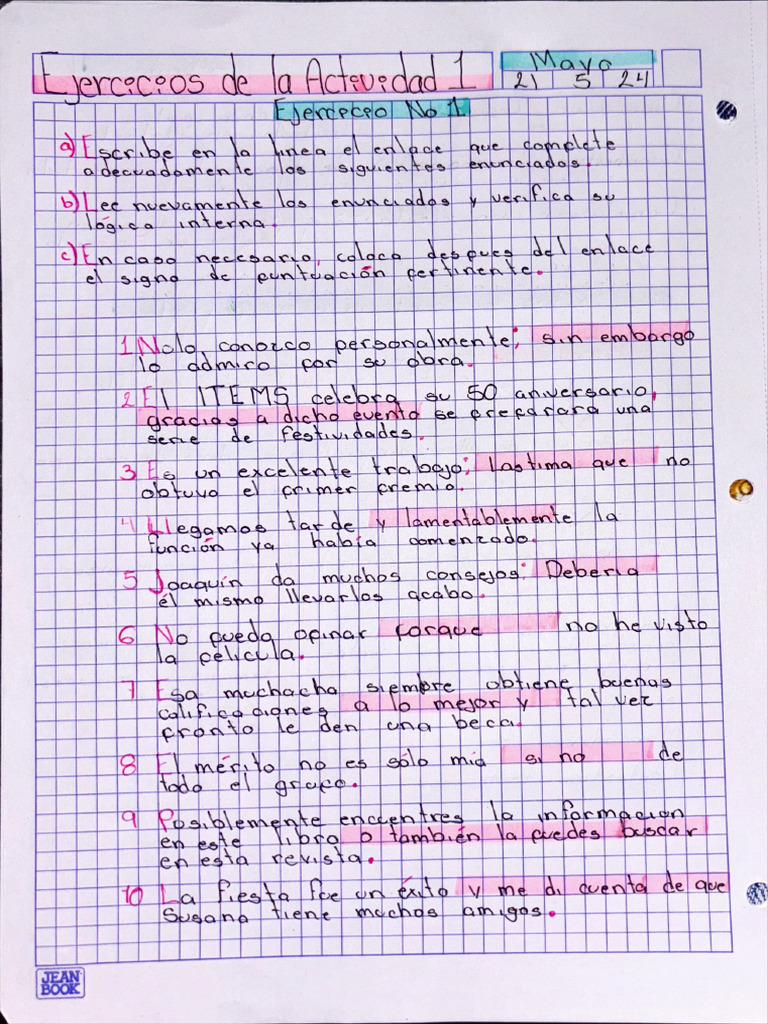 Ejercicios de la Actividad 1
Mayo
21 5 24
Ejercecio No 1
a) Escribe en la linea el enlace que complete
adecuadamente los siguientes enunciados.
b) Lee nuevamente los enunciados y verifica su
lógica interna.
c) En caso necesario, coloca despues del enlace
el signo de puntuación pertinente.
1 No lo conozco personalmente; sin embargo
lo admiro por su obra.
2 El ITEMS celebra su 50 aniversario,
gracias a dicho evento se preparara una
serie de festividades.
3 Es un excelente trabajo; Lastima que no
obtuvo el primer premio.
4 Llegamos tarde y lamentablemente la
función ya había comenzado.
5 Joaquín da muchos consejos; Deberia
él mismo llevarlos acabo.
6 No puedo opinar porque no he visto
la pelicula.
7 Esa muchacha siempre obtiene buenas
calificaciones a lo mejor y tal vez
pronto le den una beca.
8 El mérito no es sólo mio si no de
todo el grupo.
9 Posiblemente encuentres la informacion
en este libro o también la puedes buscar
en esta revista.
10 La fiesta fue un éxito y me di cuenta de que
Susana tiene muchos amigos.
JEAN
BOOK